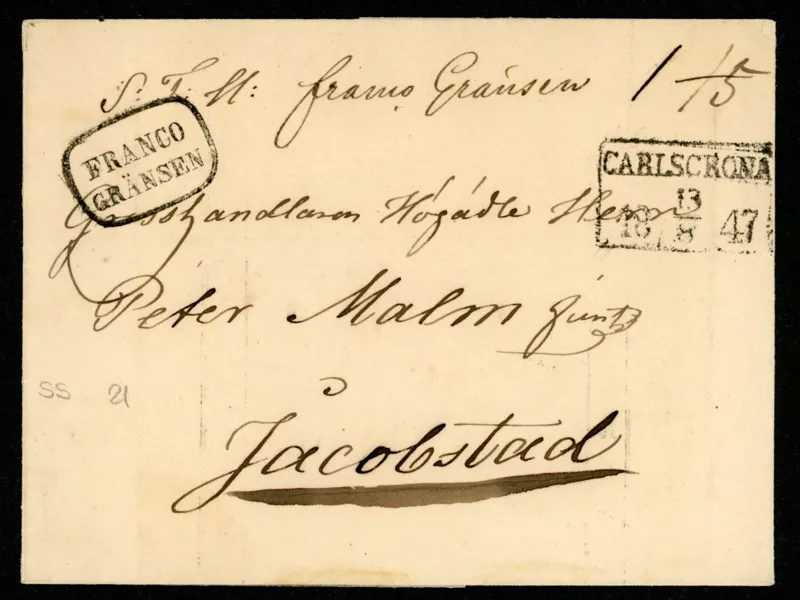 S. T. H: franco Gränsen 1 15
FRANCO
GRÄNSEN
CARLSCRONA
18 13/8 47
Grosshandlaren Högädle Herr
Peter Malm
Jacobstad
SS 21